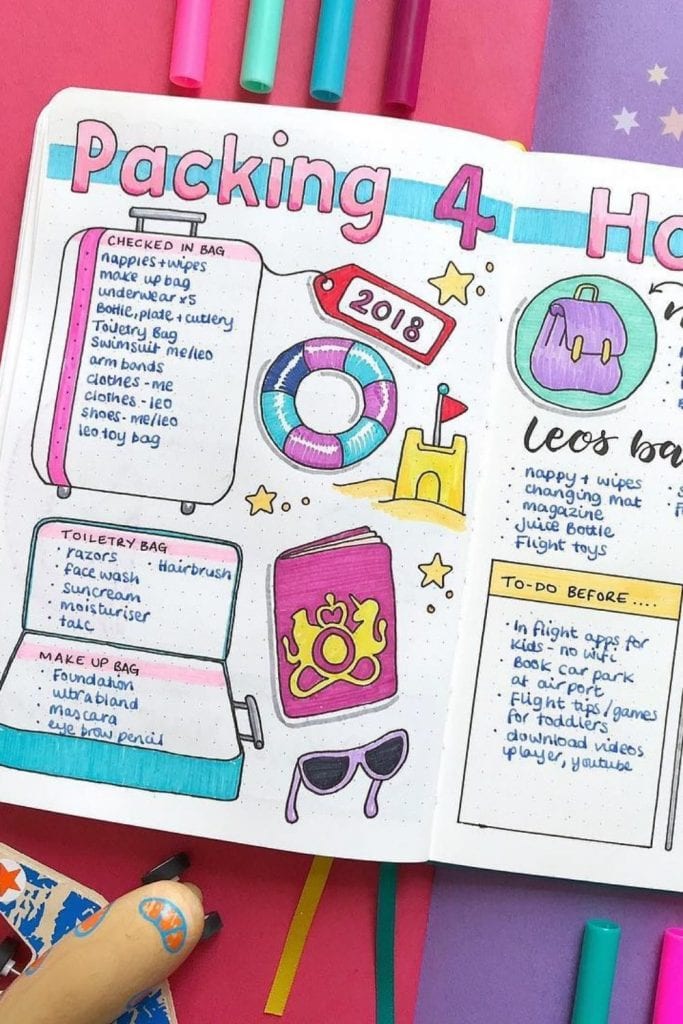 Packing 4 Ho
CHECKED IN BAG
nappies + wipes
make up bag
underwear x5
Bottle, plate + cutlery
Toiletry Bag
Swimsuit me/leo
arm bands
clothes - me
clothes - leo
shoes - me/leo
leo toy bag
2018
TOILETRY BAG
• razors
• Hairbrush
• face wash
• suncream
• moisturiser
• talc
MAKE UP BAG
• Foundation
• ultrabland
• mascara
• eye brow pencil
Leos ba
• nappy + wipes
changing mat
• magazine
• Juice Bottle
• Flight toys
TO-DO BEFORE....
• In flight apps for
kids - no wifi
• Book car park
at airport
• Flight tips/games
for toddlers
• download videos
iplayer, youtube